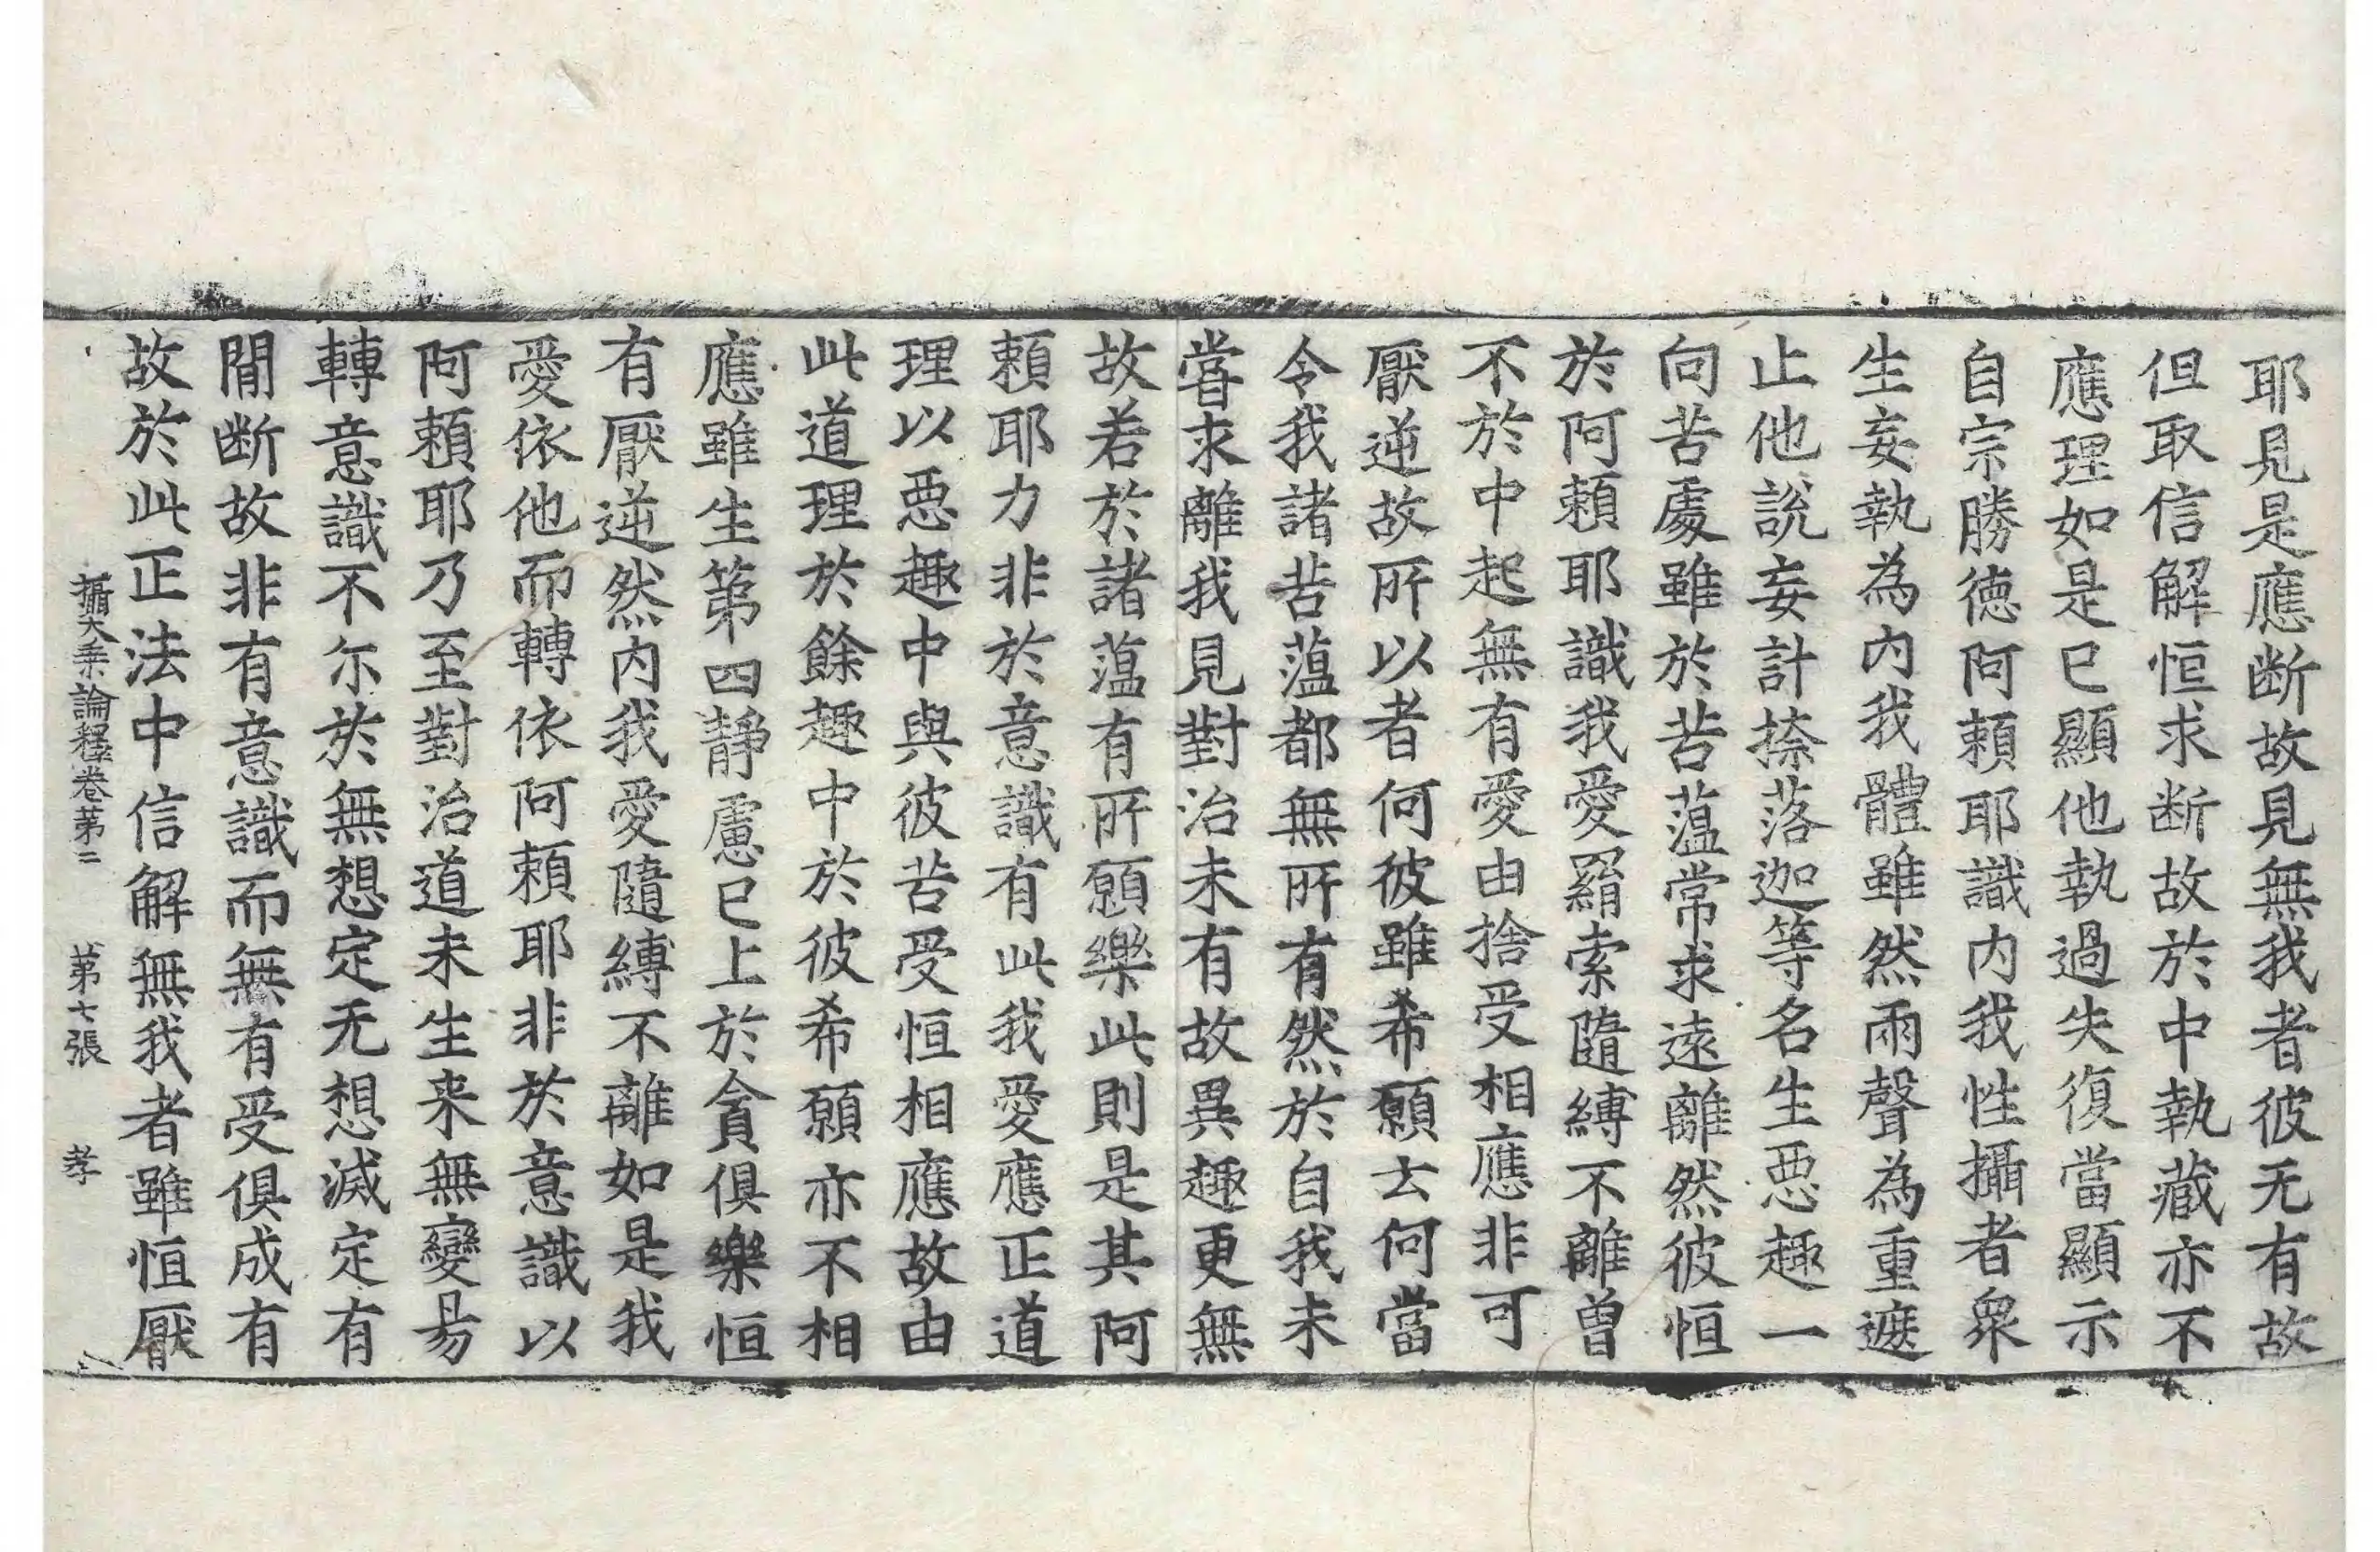 耶見是應断故見無我者彼无有故
但取信解恒求断故於中執藏亦不
應理如是已顯他執過失復當顯示
自宗勝德阿頼耶識内我性攝者衆
生妄執為内我體雖然兩聲為重遮
止他說妄計捺落迦等名生惡趣一
向苦處雖於苦薀常求遠離然彼恒
於阿頼耶識我愛羂索隨縛不離曾
不於中起無有愛由捨受相應非可
厭逆故所以者何彼雖希願云何當
令我諸苦薀都無所有然於自我未
甞求離我見對治未有故異趣更無
故若於諸薀有所願樂此則是其阿
頼耶力非於意識有此我愛應正道
理以惡趣中與彼苦受恒相應故由
此道理於餘趣中於彼希願亦不相
應雖生第四靜慮已上於貪俱樂恒
有厭逆然内我愛隨縛不離如是我
愛依他而轉依阿頼耶非於意識以
阿頼耶乃至對治道未生来無變易
轉意識不尓於無想定无想滅定有
間断故非有意識而無有受俱成有
故於此正法中信解無我者雖恒厭
攝大乘論釋卷第二　第七張　孝